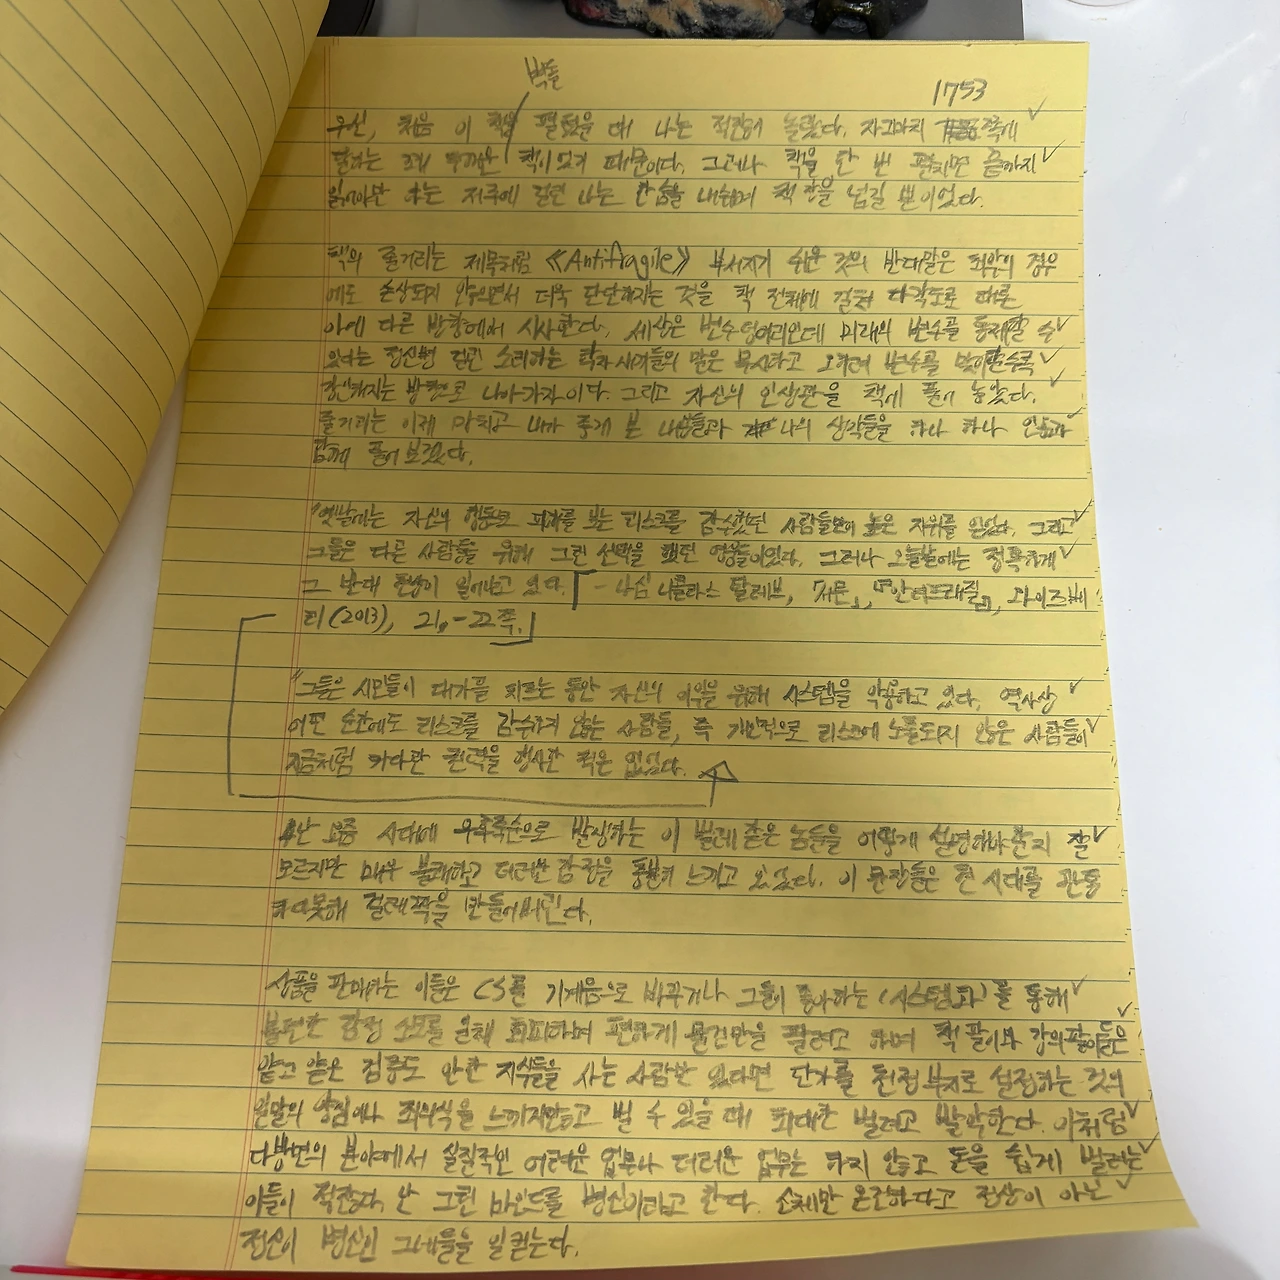 벽돌
1753
우선, 처음 이 책을 펼쳤을 때 나는 적잖이 놀랐다. 자그마치 쪽에
달하는 꽤 두꺼운 책이었기 때문이다. 그러나 책을 한 번 펼치면 끝까지
읽어야만 하는 저주에 걸린 나는 한숨을 내쉬며 책장을 넘길 뿐이었다.
책의 줄거리는 제목처럼 《Antifragile》 부서지기 쉬운 것의 반대말은 최악의 경우
에도 손상되지 않으면서 더욱 단단해지는 것을 책 전체에 걸쳐 다각도로 다른
아예 다른 방향에서 시사한다. 세상은 변수덩어리인데 미래의 변수를 통제할 수
있다는 정신병 걸린 소리하는 학자새끼들의 말은 무시하고 오히려 변수를 맞이할수록
강해지는 방향으로 나아가자이다. 그리고 자신의 인생관을 책에 풀어 놓았다.
줄거리는 이제 마치고 내가 좋게 본 내용들과 나의 생각들을 하나 하나 인용과
함께 풀어 보겠다.
"옛날에는 자신의 행동으로 피해를 보는 리스크를 감수했던 사람들만이 높은 지위를 얻었다. 그리고
그들은 다른 사람들을 위해 그런 선택을 했던 영웅들이었다. 그러나 오늘날에는 정확하게
그 반대 현상이 일어나고 있다. 「- 나심 니콜라스 탈레브, 「서문」, 『안티프래질』, 와이즈베
리(2013), 21,-22쪽.」
"그들은 시민들이 대가를 치르는 동안 자신의 이익을 위해 시스템을 악용하고 있다. 역사상
어떤 순간에도 리스크를 감수하지 않는 사람들, 즉 개인적으로 리스크에 노출되지 않은 사람들이
지금처럼 커다란 권력을 행사한 적은 없었다.
난 요즘 시대에 우후죽순으로 발생하는 이 벌레 같은 놈들을 어떻게 설명해야 할지 잘
모르지만 매우 불쾌하고 더러운 감정을 통렬히 느끼고 있었다. 이 문장들은 현 시대를 관통
하다못해 걸레짝을 만들어버린다.
상품을 판매하는 이들은 CS를 기계음으로 바꾸거나 그들이 좋아하는 (시스템화)를 통해
불편한 감정 소모를 일체 회피하며 편하게 물건만을 팔려고 하며 책팔이와 강의팔이들은
얕고 얕은 검증도 안한 지식들을 사는 사람만 있다면 단가를 천정부지로 설정하는 것에
일말의 양심이나 죄의식을 느끼지않고 벌 수 있을 때 최대한 벌려고 발악한다. 이처럼
다방면의 분야에서 실질적인 어려운 업무나 더러운 업무는 하지 않고 돈을 쉽게 벌려는
이들이 적잖다. 난 그런 마인드를 병신이라고 한다. 신체만 온전하다고 정상이 아닌
정신이 병신인 그네들을 일컫는다.